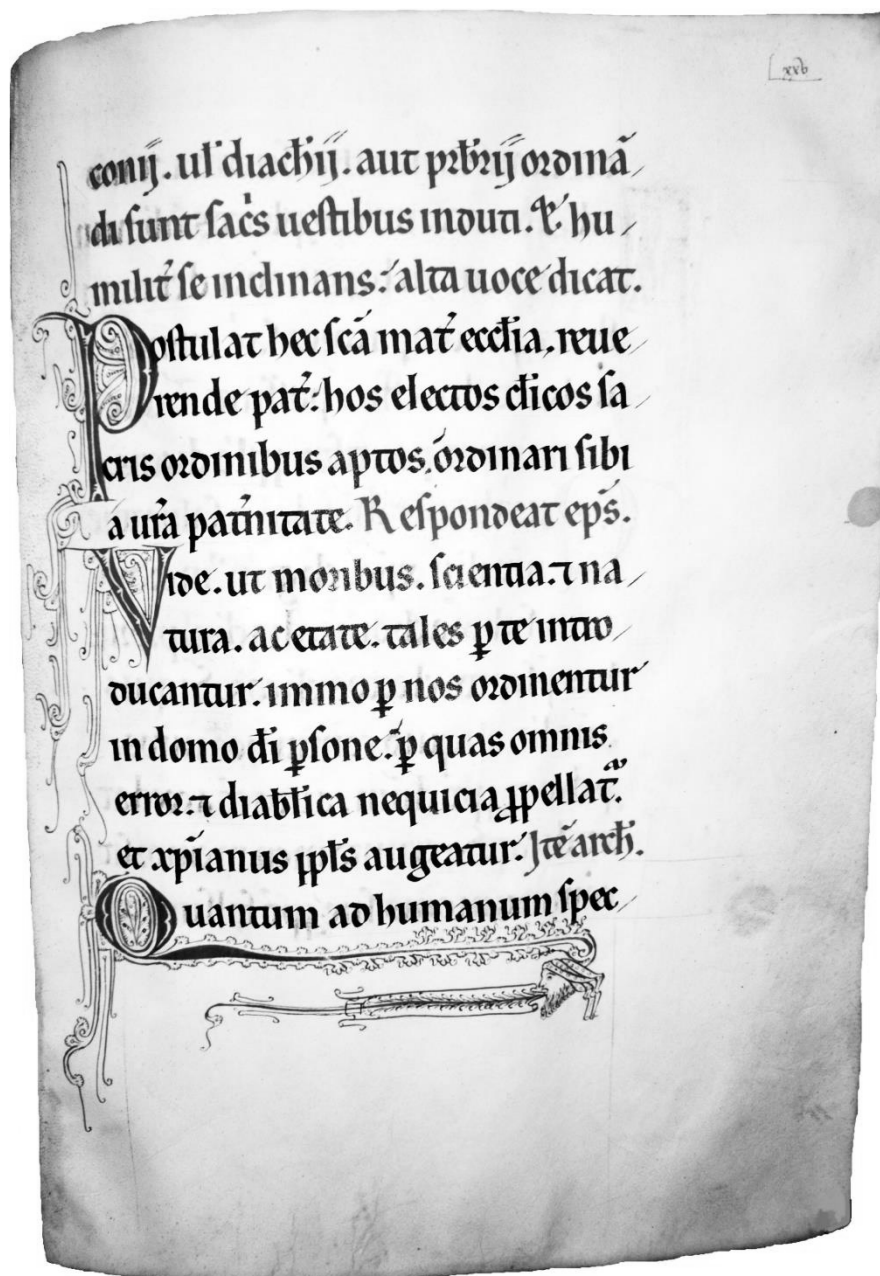 xxv
conij. ul' diacħij. aut prƀrij ordinā
di sunt sac̉s uestibus induti. ⁊ hu
milit̉ se inclinans: alta uoce dicat.
Postulat hec scā mat̉ ecclia, reue
rende pat̉: hos electos clicos sa
cris ordinibus aptos, ordinari sibi
a ur̄a pat̉nitate. Respondeat ep̄s.
Vide. ut moribus. scientia. ⁊ na
tura. ac etate. tales ꝑ te intro
ducantur. immo ꝑ nos ordinentur
in domo dī ꝑsone. ꝑ quas omnis
error. ⁊ diabƚica nequicia ꝓpellat̉.
et xp̄ianus pp̄ls augeatur. Itē arcħ.
Quantum ad humanum spec